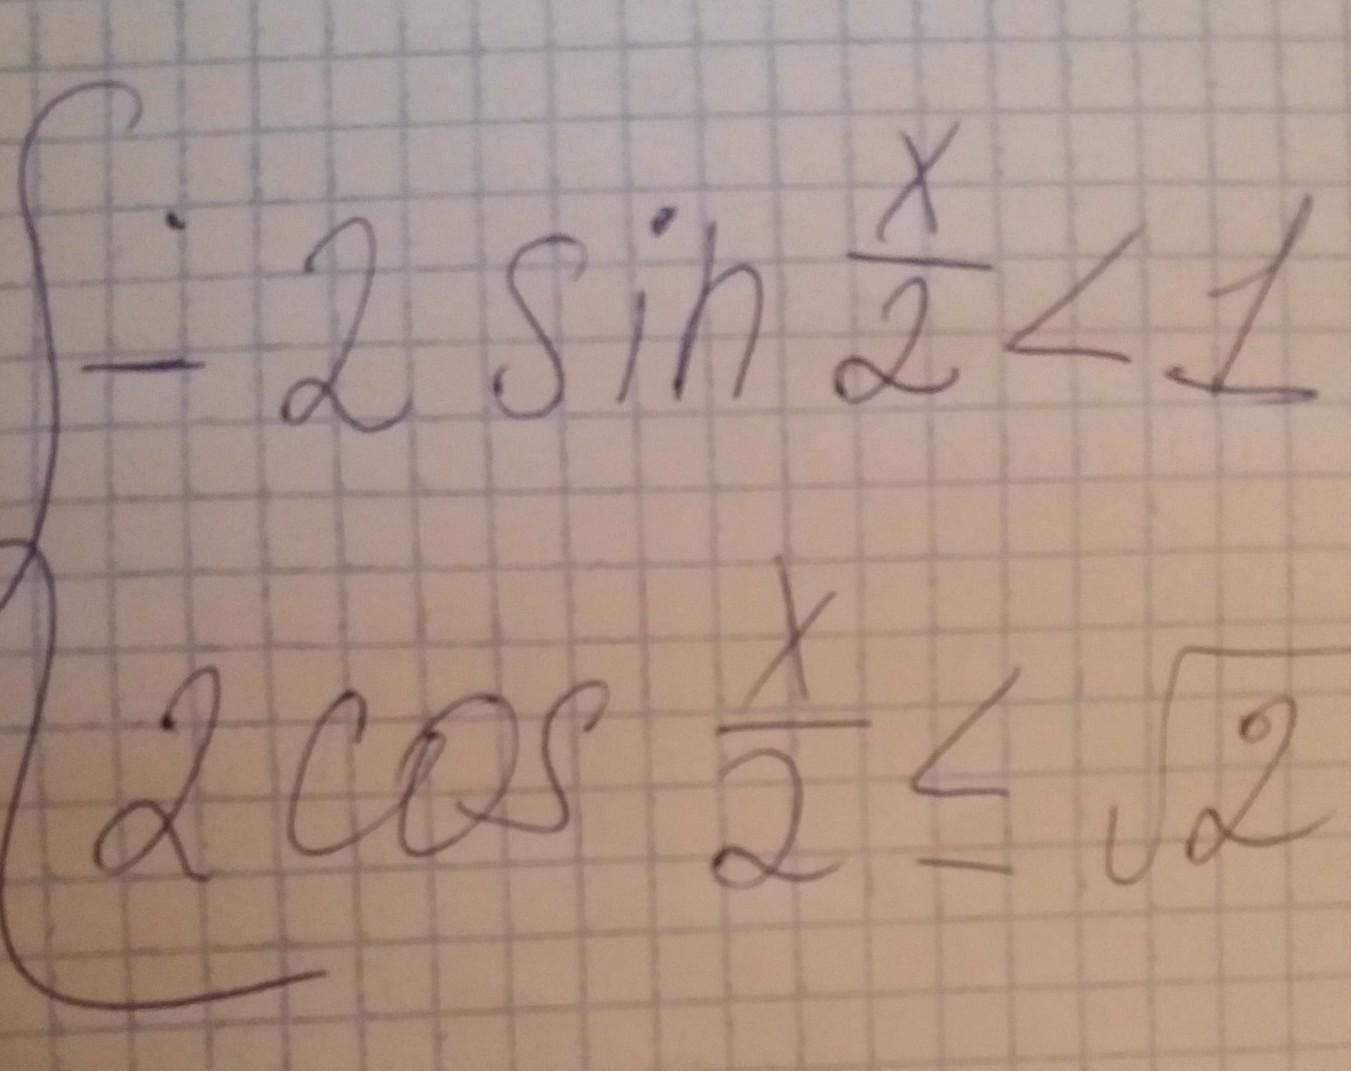 - 2 sin x/2 < 1
2 cos x/2 ≤ √2